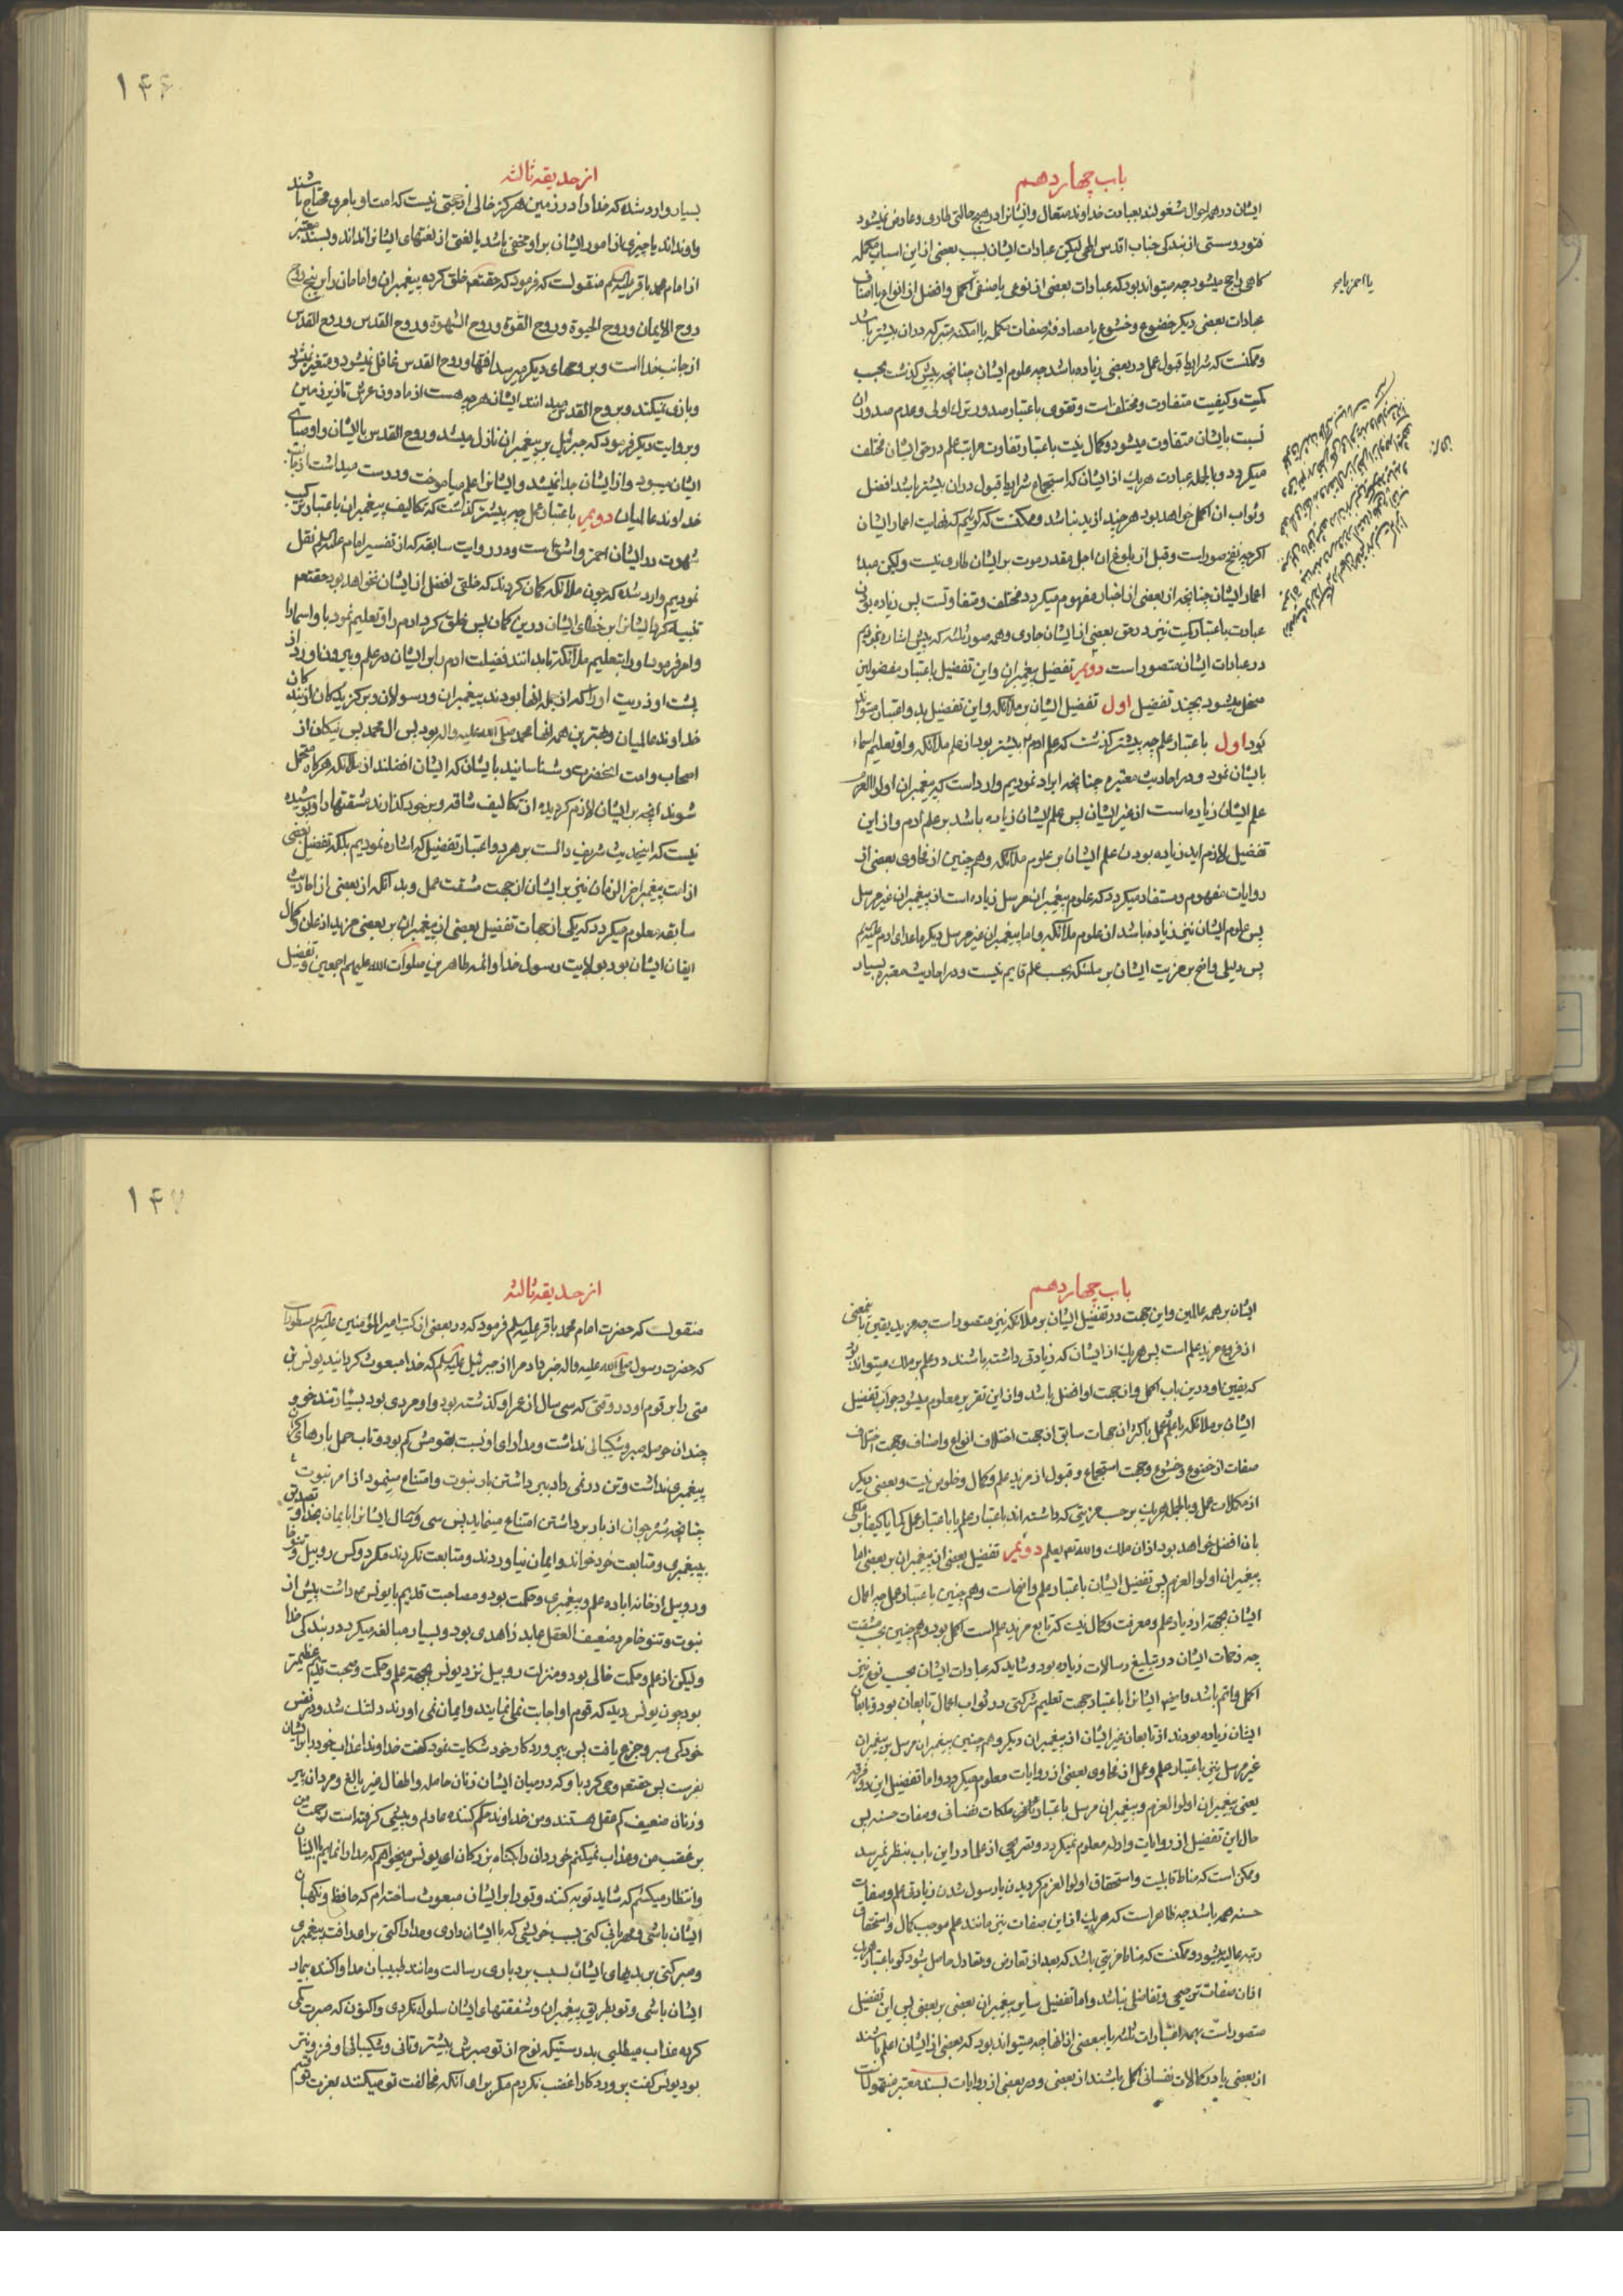 باب چهاردهم
ایشان در همه احوال مشغولند بعبادت خداوند متعال و ایشانرا در هیچ حالتی طاری و عارض نمیشود
فتور و سستی از بندکی جناب اقدس الهی لیکن عبادات ایشان بسبب بعضی از این اسباب مکمله
کاهی راجح میشود چه میتواند بود که عبادات بعضی از نوعی یا صنفی اکمل و افضل از انواع یا اصناف
عبادات بعضی دیکر خضوع و خشوع یا مصادفه صفات مکمله یا امکنه متبرکه در ان بیشتر باشد
و ممکنست که شرایط قبول عمل در بعضی زیاده باشد چه علوم ایشان چنانچه پیش کذشت بحسب
کمیت و کیفیت متفاوت و مختلف است و تقوی باعتبار صدور ترک اولی و عدم صدور ان
نسبت بایشان متفاوت میشود و کمال نیت باعتبار تفاوت مراتب علم در حق ایشان مختلف
میکردد و بالجمله عبادت هریک از ایشان که استجماع شرایط قبول در ان بیشتر باشد افضل
و ثواب ان اکمل خواهد بود هرچند ازید نباشد و ممکنست که کوئیم که نهایت اعمار ایشان
اکرچه نفخ صور است و قبل از بلوغ ان اجل مقدر موت بر ایشان طاری نیست ولیکن مبدا
اعمار ایشان چنانچه از بعضی از اخبار مفهوم میکردد مختلف و متفاوتست پس زیاده بودن
عبادت باعتبار کمیت نیز در حق بعضی از ایشان جاری و همه صور ثلثه که پیش اشاره نمودیم
در عبادات ایشان متصور است دویم تفضیل پیغمبران و این تفضیل باعتبار مفضولین
منحل میشود بچند تفضیل اول تفضیل ایشان بر ملائکه و این تفضیل بدو اعتبار میتواند
بود اول باعتبار علم چه پیشتر کذشت که علم ادم بیشتر بود از علم ملائکه و او تعلیم اسماء
بایشان نمود و در احادیث معتبره چنانچه ایراد نمودیم وارد است که پیغمبران اولوالعزم
علم ایشان زیاده است از غیر ایشان پس علم ایشان زیاده باشد بر علم ادم و از این
تفضیل لازم اید زیاده بودن علم ایشان بر علوم ملائکه و همچنین از فحاوی بعضی از
روایات مفهوم و مستفاد میکردد که علوم پیغمبران مرسل زیاده است از پیغمبران غیر مرسل
پس علوم ایشان نیز زیاده باشد از علوم ملائکه و اما پیغمبران غیر مرسل دیکر ماعدای ادم علیه السلم
پس دلیلی واضح بر مزیت ایشان بر ملئکه بحسب علم قایم نیست و در احادیث معتبره بسیار
۱۴۶
از حدیقه ثالثه
بسیار وارد شده که خدا را در زمین هرکز خالی از حجتی نیست که امت او بامری محتاج باشند
و او نداند یا چیزی از امور ایشان بر او مخفی باشد یا لغتی از لغتهای ایشانرا نداند و بسند معتبر
از امام محمد باقر علیه السلم منقولست که فرمود که حقتعالی خلق کرده پیغمبران و امامان را بر پنج روح
روح الایمان و روح الحیوة و روح القوة و روح الشهوة و روح القدس و روح القدس
از جانب خدا است و بروحهای دیکر میرسد افتها و روح القدس غافل نمیشود و متغیر نمیشود
و بازی نمیکند و بروح القدس میدانند ایشان هرچه هست از مادون عرش تا زیر زمین
و بروایت دیکر فرمود که جبرئیل بر پیغمبران نازل میشد و روح القدس با ایشان و اوصیای
ایشان میبود و از ایشان جدا نمیشد و ایشانرا علم میاموخت و درست میداشت از جانب
خداوند عالمیان دویم باعتبار عمل چه بیشتر کذشت که تکالیف پیغمبران باعتبار ترکیب
شهوت در ایشان احمز و اشق است و در روایت سابقه که از تفسیر امام علیه السلم نقل
نمودیم وارد شده که چون ملائکه کمان کردند که خلقی افضل از ایشان نخواهد بود حقتعالی
تنبیه کرد ایشانرا بر خطای ایشان در این کمان پس خلق کرد ادم را و تعلیم نمود باو اسما را
و امر فرمود او را بتعلیم ملائکه تا بدانند فضیلت ادم را بر ایشان در علم و بیرون اورد از
پشت او ذریت او را که از جمله انها بودند پیغمبران و رسولان و برکزیدکان از بندکان
خداوند عالمیان و بهترین همه انها محمد صلی الله علیه و اله بود پس ال محمد پس نیکان از
اصحاب و امت انحضرت و شناسانید بایشان که ایشان افضلند از ملائکه هرکاه متحمل
شوند انچه بر ایشان لازم کردیده از تکالیف شاقه و بر خود کذارند مشقتها را و پوشیده
نیست که اینحدیث شریف دالست بر هر دو اعتبار تفضیل که اشاره نمودیم بلکه تفضیل بعضی
از امت پیغمبر اخر الزمان نیز بر ایشان از جهت مشقت عمل و بدانکه از بعضی از احادیث
سابقه معلوم میکردد که یکی از جهات تفضیل بعضی از پیغمبران بر بعضی مزید اذعان و کمال
ایقان ایشان بود بولایت رسول خدا و ائمه طاهرین صلوات الله علیهم اجمعین و تفضیل
باب چهاردهم
ایشان بر همه عالمین و این جهت در تفضیل ایشان بر ملائکه نیز متصور است چه مزید یقین بامعنی
از فروع مزید علم است پس هریک از ایشان که زیادتی داشته باشند در علم بر ملک میتواند بود
که یقین او در این باب اکمل و از انجهت او افضل باشد و از این تقریر معلوم میشود جواز تفضیل
ایشان بر ملائکه باعتبار عمل باکثر ان جهات سابق از جهت اختلاف انواع و اصناف و جهت اختلاف
صفات از خضوع و خشوع و جهت استجماع و قبول از مزید علم و کمال و خلوص نیت و بعضی دیکر
از مکملات عمل و بالجمله هریک بر حسب مزیتی که داشته اند باعتبار علم یا باعتبار عمل کما یا کیفا بر ملکی
بان افضل خواهد بود از ان ملک والله تعالی یعلم دویم تفضیل بعضی از پیغمبران بر بعضی اما
پیغمبران اولوالعزم پس تفضیل ایشان باعتبار علم واضح است و همچنین باعتبار عمل چه اعمال
ایشان بجهة ازدیاد علم و معرفت و کمال نیت که تابع مزید علم است اکمل بود و همچنین بحسب مشقت
چه زحمات ایشان در تبلیغ رسالات زیاده بود و شاید که عبادات ایشان بحسب نوع نیز
اکمل و اتم باشد و ایضا ایشانرا باعتبار جهت تعلیم شرکتی در ثواب اعمال تابعان بود و تابعان
ایشان زیاده بودند از تابعان غیر ایشان از پیغمبران دیکر و همچنین پیغمبران مرسل بر پیغمبران
غیر مرسل نیز باعتبار علم و عمل از فحاوی بعضی از روایات معلوم میکردد و اما تفضیل این دو فرقه
یعنی پیغمبران اولوالعزم و پیغمبران مرسل باعتبار تفاضل ملکات نفسانی و صفات حسنه پس
حال این تفضیل از روایات و ادله معلوم نمیکردد و تصریحی از علما در این باب بنظر نمیرسد
و ممکن است که مناط قابلیت و استحقاق اولوالعزم کردیدن یا رسول شدن زیادتی علم و صفات
حسنه همه باشد چه ظاهر است که هریک از این صفات نیز مانند علم موجب کمال و استحقاق
رتبه عالیه میشود و ممکنست که مناط مزیتی باشد که بعد از تعارض و تعادل حاصل شود کو باعتبار هریک
از ان صفات ترجیحی و تفاضلی نباشد و اما تفضیل سایر پیغمبران بعضی بر بعضی پس این تفضیل
متصور است بهمه اعتبارات ثلثه یا ببعضی از انها چه میتواند بود که بعضی از ایشان اعلم باشند
از بعضی یا در کمالات نفسانی اکمل باشند از بعضی و در بعضی از روایات بسند معتبر منقولست
۱۴۷
از حدیقه ثالثه
منقولست که حضرت امام محمد باقر علیه السلم فرمود که در بعضی از کتب امیرالمؤمنین علیه السلم مسطور است
که حضرت رسول صلی الله علیه و اله خبر داد مرا از جبرئیل علیه السلم که خدا مبعوث کردانید یونس بن
متی را بر قوم او در وقتی که سی سال از عمر او کذشته بود و او مردی بود بسیار تند خو و
چندان حوصله صبر و شکیبائی نداشت و مدارای او نسبت بقومش کم بود و تاب حمل بارهای کران
پیغمبری نداشت و تن در نمی داد ببر داشتن بار نبوت و امتناع مینمود از امر نبوت
چنانچه شتر جوان از بار برداشتن امتناع مینماید پس سی و سه سال ایشانرا بایمان بخدا و تصدیق
بپیغمبری و متابعت خود خواند و ایمان نیاوردند و متابعت نکردند مکر دو کس روبیل و تنوخا
و روبیل از خانه اباده علم و پیغمبری و حکمت بود و مصاحبت قدیم با یونس داشت پیش از
نبوت و تنوخا مرد ضعیف العقل عابد زاهدی بود و بسیار مبالغه میکرد در بندکی خدا
ولیکن از علم و حکمت خالی بود و منزلت روبیل نزد یونس بجهة علم و حکمت و صحبت قدیم عظیمتر
بود چون یونس دید که قوم او اجابت نمی نمایند و ایمان نمی اورند دلتنک شد و در نفس
خود کمی صبر و جزع یافت پس بپروردکار خود شکایت نمود کفت خداوندا عذاب خود را بر ایشان
بفرست پس حقتعالی وحی کرد باو که در میان ایشان زنان حامله و اطفال غیر بالغ و مردان پیر
و زنان ضعیف کم عقل هستند و من خداوند حکم کننده عادلم و پیشی کرفته است رحمت من
بر غضب من و عذاب نمیکنم خوردان را بکناه بزرکان ای یونس میخواهم که مدارا نمایم با ایشان
و انتظار میکشم که شاید توبه کنند و تو را بر ایشان مبعوث ساخته ام که حافظ و نکهبان
ایشان باشی و مهربانی کنی بسبب خویشی که با ایشان داری و مدارا کنی برافت پیغمبری
و صبر کنی بر بدیهای ایشان بسبب بردباری رسالت و مانند طبیبان مداوا کننده بیمار
ایشان باشی و تو بطریق پیغمبران و شفقتهای ایشان سلوک نکردی و اکنون که صبرت کمی
کرده عذاب میطلبی بدرستیکه نوح از تو صبرش بیشتر و تانی و شکیبائی او فزونتر
بود یونس کفت پروردکارا غضب نکردم مکر برای انکه مخالفت تو میکنند بعزت تو قسم